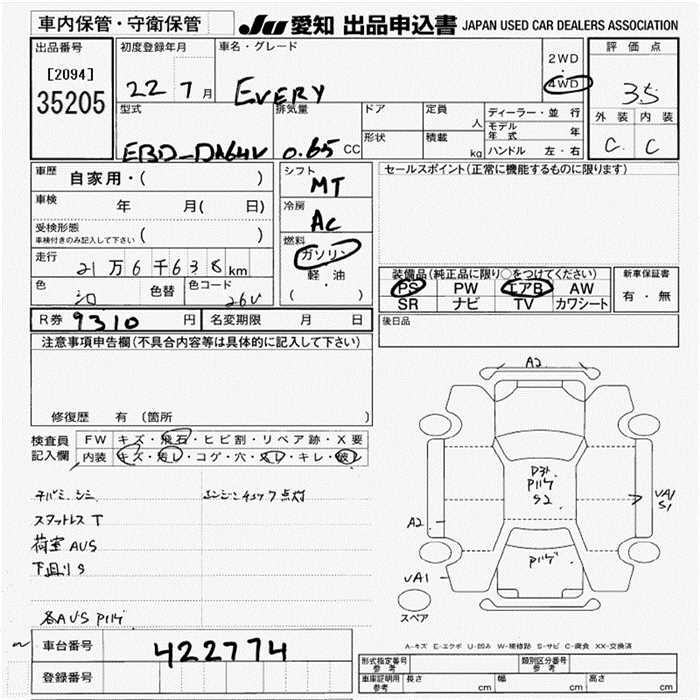 車内保管・守衛保管
JU 愛知 出品申込書 JAPAN USED CAR DEALERS ASSOCIATION
出品番号
[2094]
35205
初度登録年月
22 7月
車名・グレード
EVERY
2WD
・
4WD
評価点
35
外装 内装
C C
型式
EBD-DA64V
排気量
0.65 CC
ドア
形状
定員 人
積載 kg
ディーラー・並行
モデル年式 年
ハンドル 左・右
車歴 自家用・( )
車検 年 月( 日)
受検形態
車検付きのみ記入して下さい ( )
走行 21万6千638km
色 シロ 色替 色コード 26U
シフト
MT
冷房
AC
燃料
ガソリン
軽・油
( ・ )
セールスポイント(正常に機能するものに限ります)
装備品(純正品に限り○をつけてください)
PS PW エアB AW
SR ナビ TV カワシート
新車保証書
有・無
後日品
R券 9310 円 名変期限 月 日
注意事項申告欄(不具合内容等は具体的に記入して下さい)
修復歴 有 (箇所 )
検査員記入欄
FW キズ・飛石・ヒビ割・リペア跡・X要
内装 キズ・汚レ・コゲ・穴・スレ・キレ・破レ
エンジンチェック点灯
スタットレス T
荷室 AUS
下回り S
各AUS
車台番号 422774
登録番号
A2
S2
A2
UA1
UA1
S1
スペア
A-キズ E-エクボ U-凹み W-補修跡 S-サビ C-腐食 XX-交換済
形式指定番号 参考
類別区分番号 参考
車庫証明用 参考 長さ cm 幅 cm 高さ cm